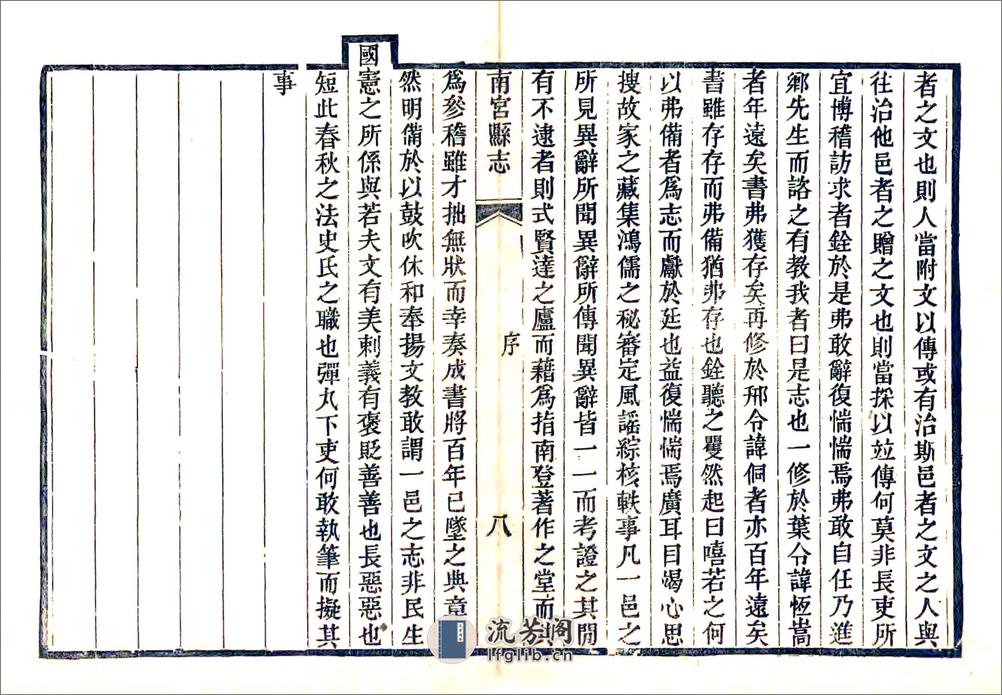 者之文也則人當附文以傳或有治斯邑者之文之人與
往治他邑者之贈之文也則當採以竝傳何莫非長吏所
宜博稽訪求者銓於是弗敢辭復惴惴焉弗敢自任乃進
鄉先生而諮之有教我者曰是志也一修於葉令諱恆嵩
者年遠矣書弗獲存矣再修於邢令諱侗者亦百年遠矣
書雖存存而弗備猶弗存也銓聽之矍然起曰嘻若之何
以弗備者爲志而獻於廷也益復惴惴焉廣耳目竭心思
搜故家之藏集鴻儒之秘審定風謠綜核軼事凡一邑之
所見異辭所聞異辭所傳聞異辭皆一一而考證之其閒
有不逮者則式賢達之廬而藉爲指南登著作之堂而
南宮縣志
序
八
爲參稽雖才拙無狀而幸奏成書將百年已墜之典章
然明備於以鼓吹休和奉揚文教敢謂一邑之志非民生
國憲之所係與若夫文有美刺義有褒貶善善也長惡惡也
短此春秋之法史氏之職也彈丸下吏何敢執筆而擬其
事
流芳閣
lfglib.cn